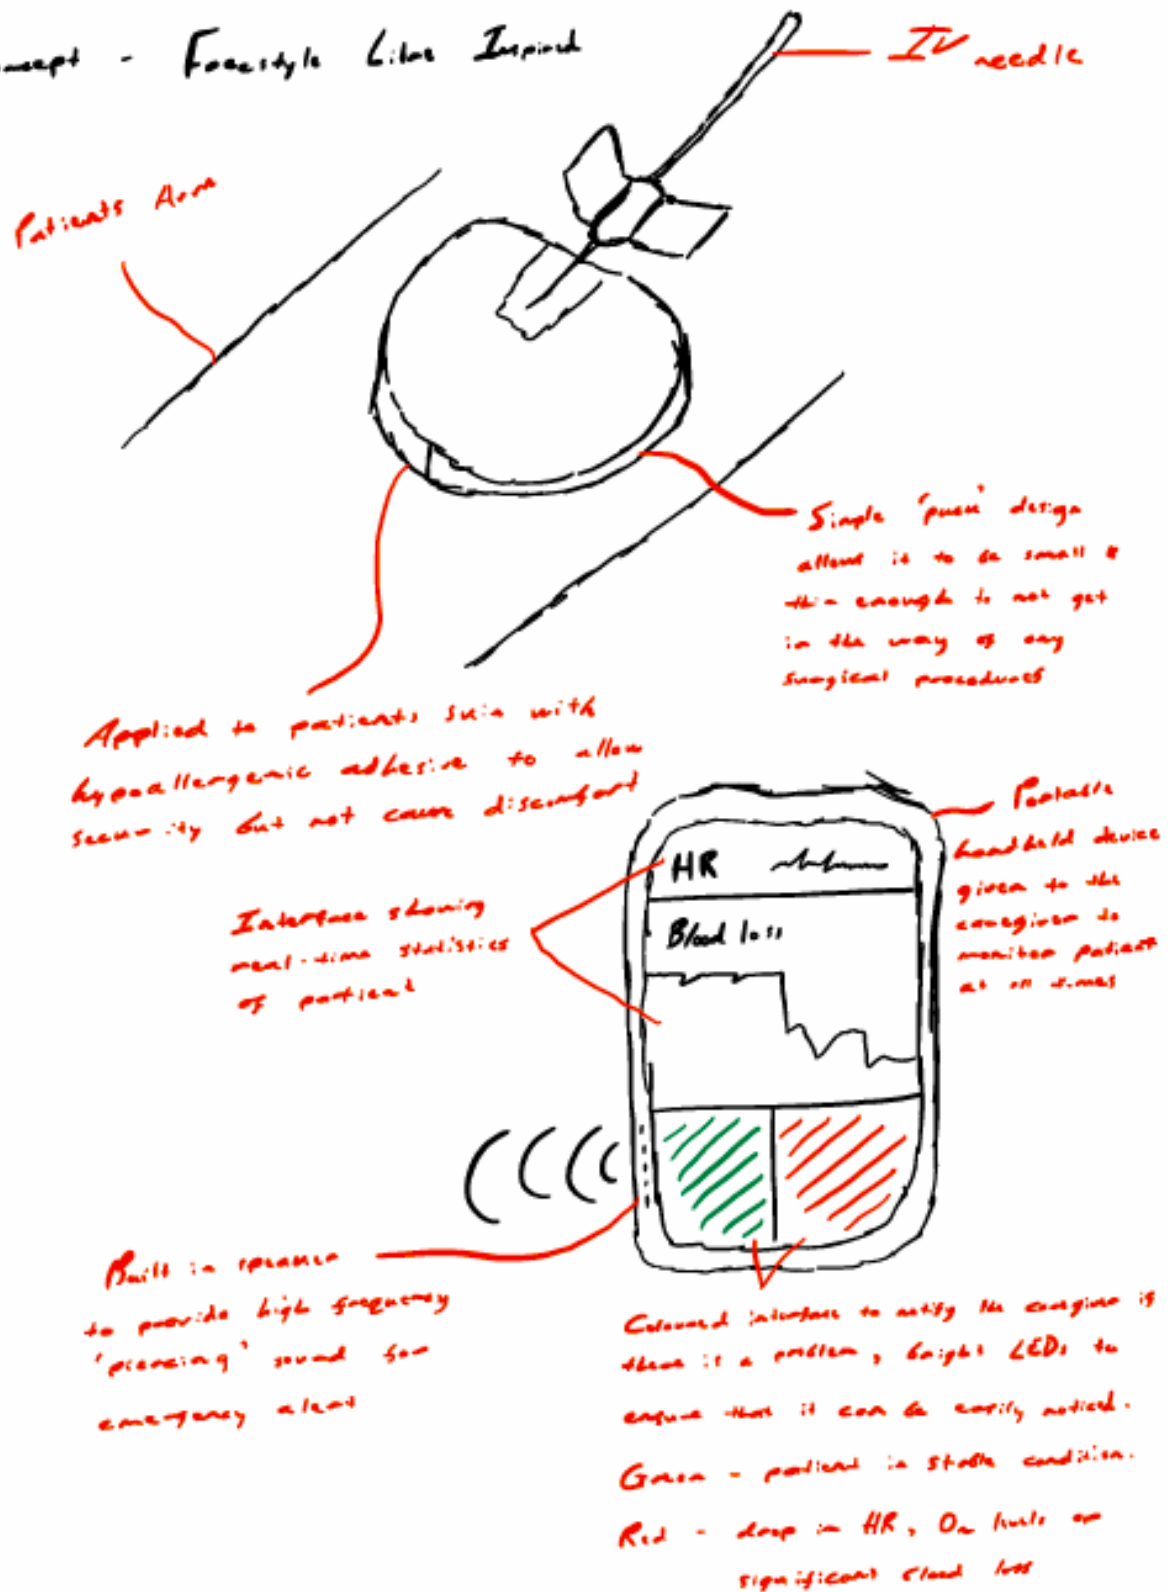 Concept - Freestyle Libre Inspired
IV needle
Patients Arm
Simple 'puck' design
allows it to be small &
thin enough to not get
in the way of any
surgical procedures
Applied to patients skin with
hypoallergenic adhesive to allow
security but not cause discomfort
Portable
handheld device
given to the
caregiver to
monitor patient
at all times
HR
Blood loss
Interface showing
real-time statistics
of patient
Built in speaker
to provide high frequency
'piercing' sound for
emergency alert
Coloured interface to notify the caregiver if
there is a problem, bright LEDs to
ensure that it can be easily noticed.
Green - patient in stable condition.
Red - drop in HR, O₂ levels or
significant blood loss